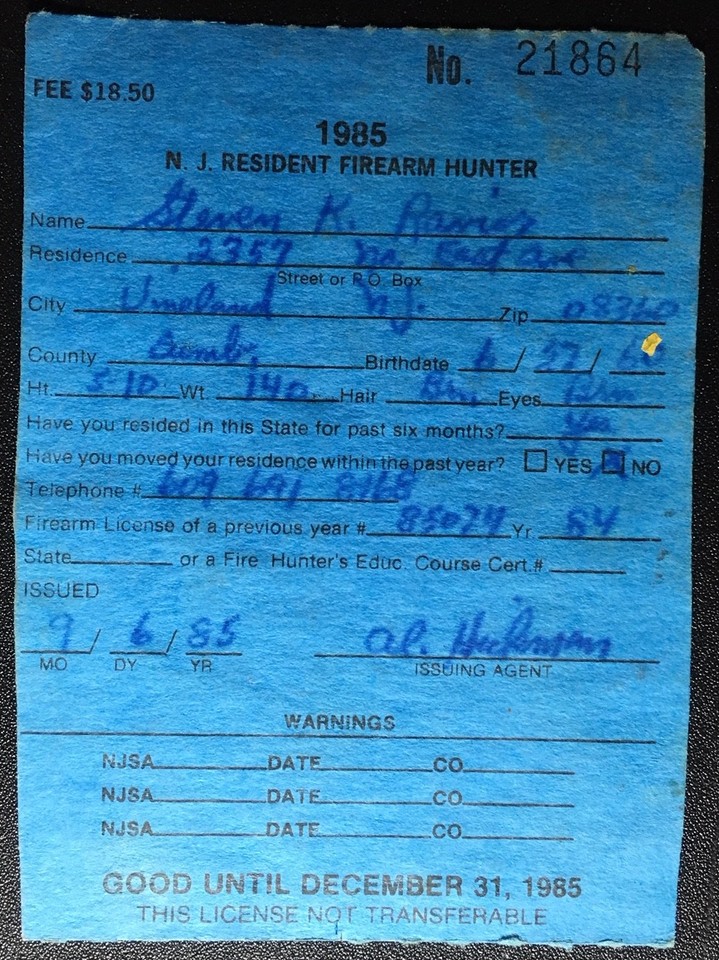 No. 21864
FEE $18.50
1985
N. J. RESIDENT FIREARM HUNTER
Name Steven K.
Residence 2357 East Ave
Street or P.O. Box
City Vineland N.J. Zip 08360
County Cumb. Birthdate 6 / /
Ht. 5-10 Wt. 140 Hair Brn Eyes Brn
Have you resided in this State for past six months? Yes
Have you moved your residence within the past year? YES NO
Telephone # 609 691 8168
Firearm License of a previous year # 85074 Yr. 84
State or a Fire Hunter's Educ. Course Cert.#
ISSUED
9 / 6 / 85 al.
MO DY YR ISSUING AGENT
WARNINGS
NJSA DATE CO
NJSA DATE CO
NJSA DATE CO
GOOD UNTIL DECEMBER 31, 1985
THIS LICENSE NOT TRANSFERABLE